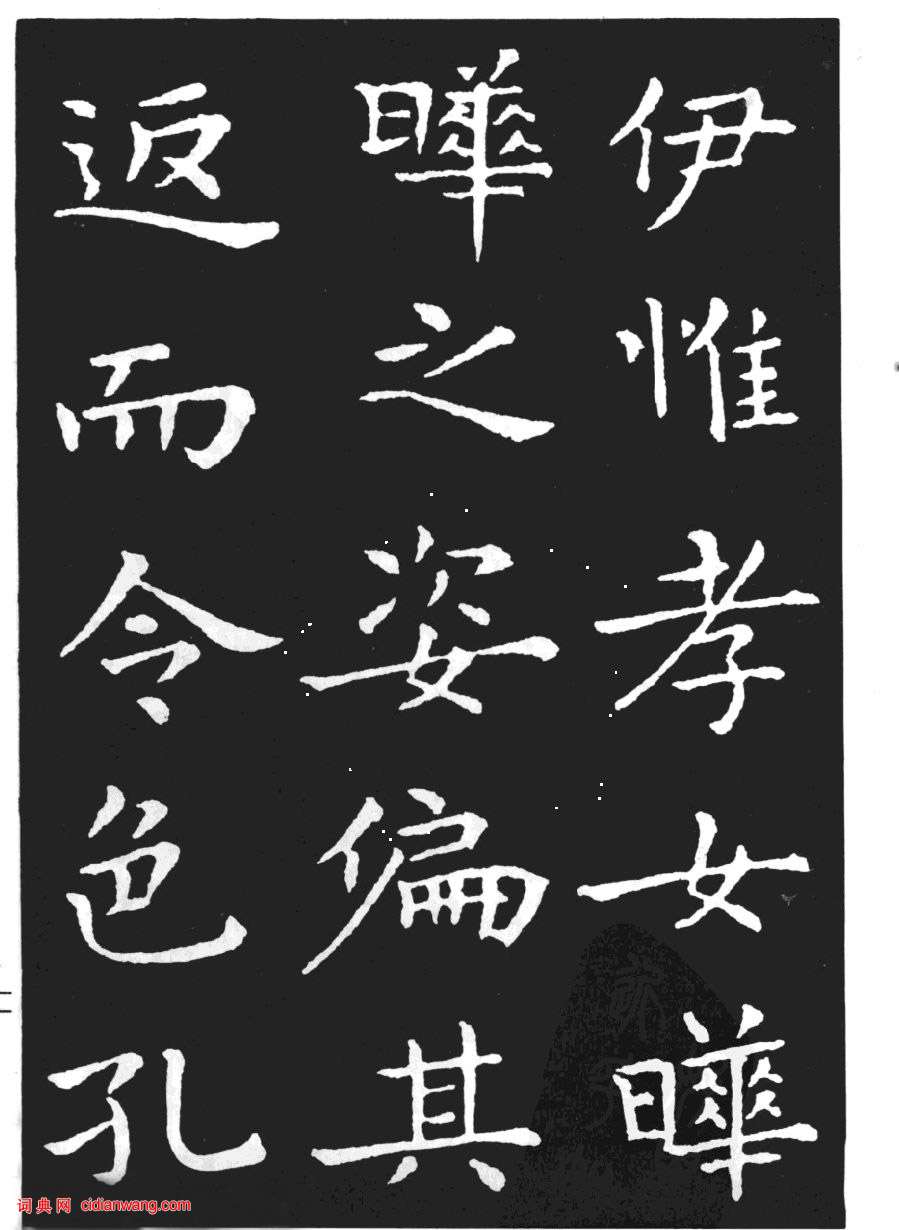 伊惟孝女曄
曄之姿偏其
返而令色孔
词典网 cidianwang.com